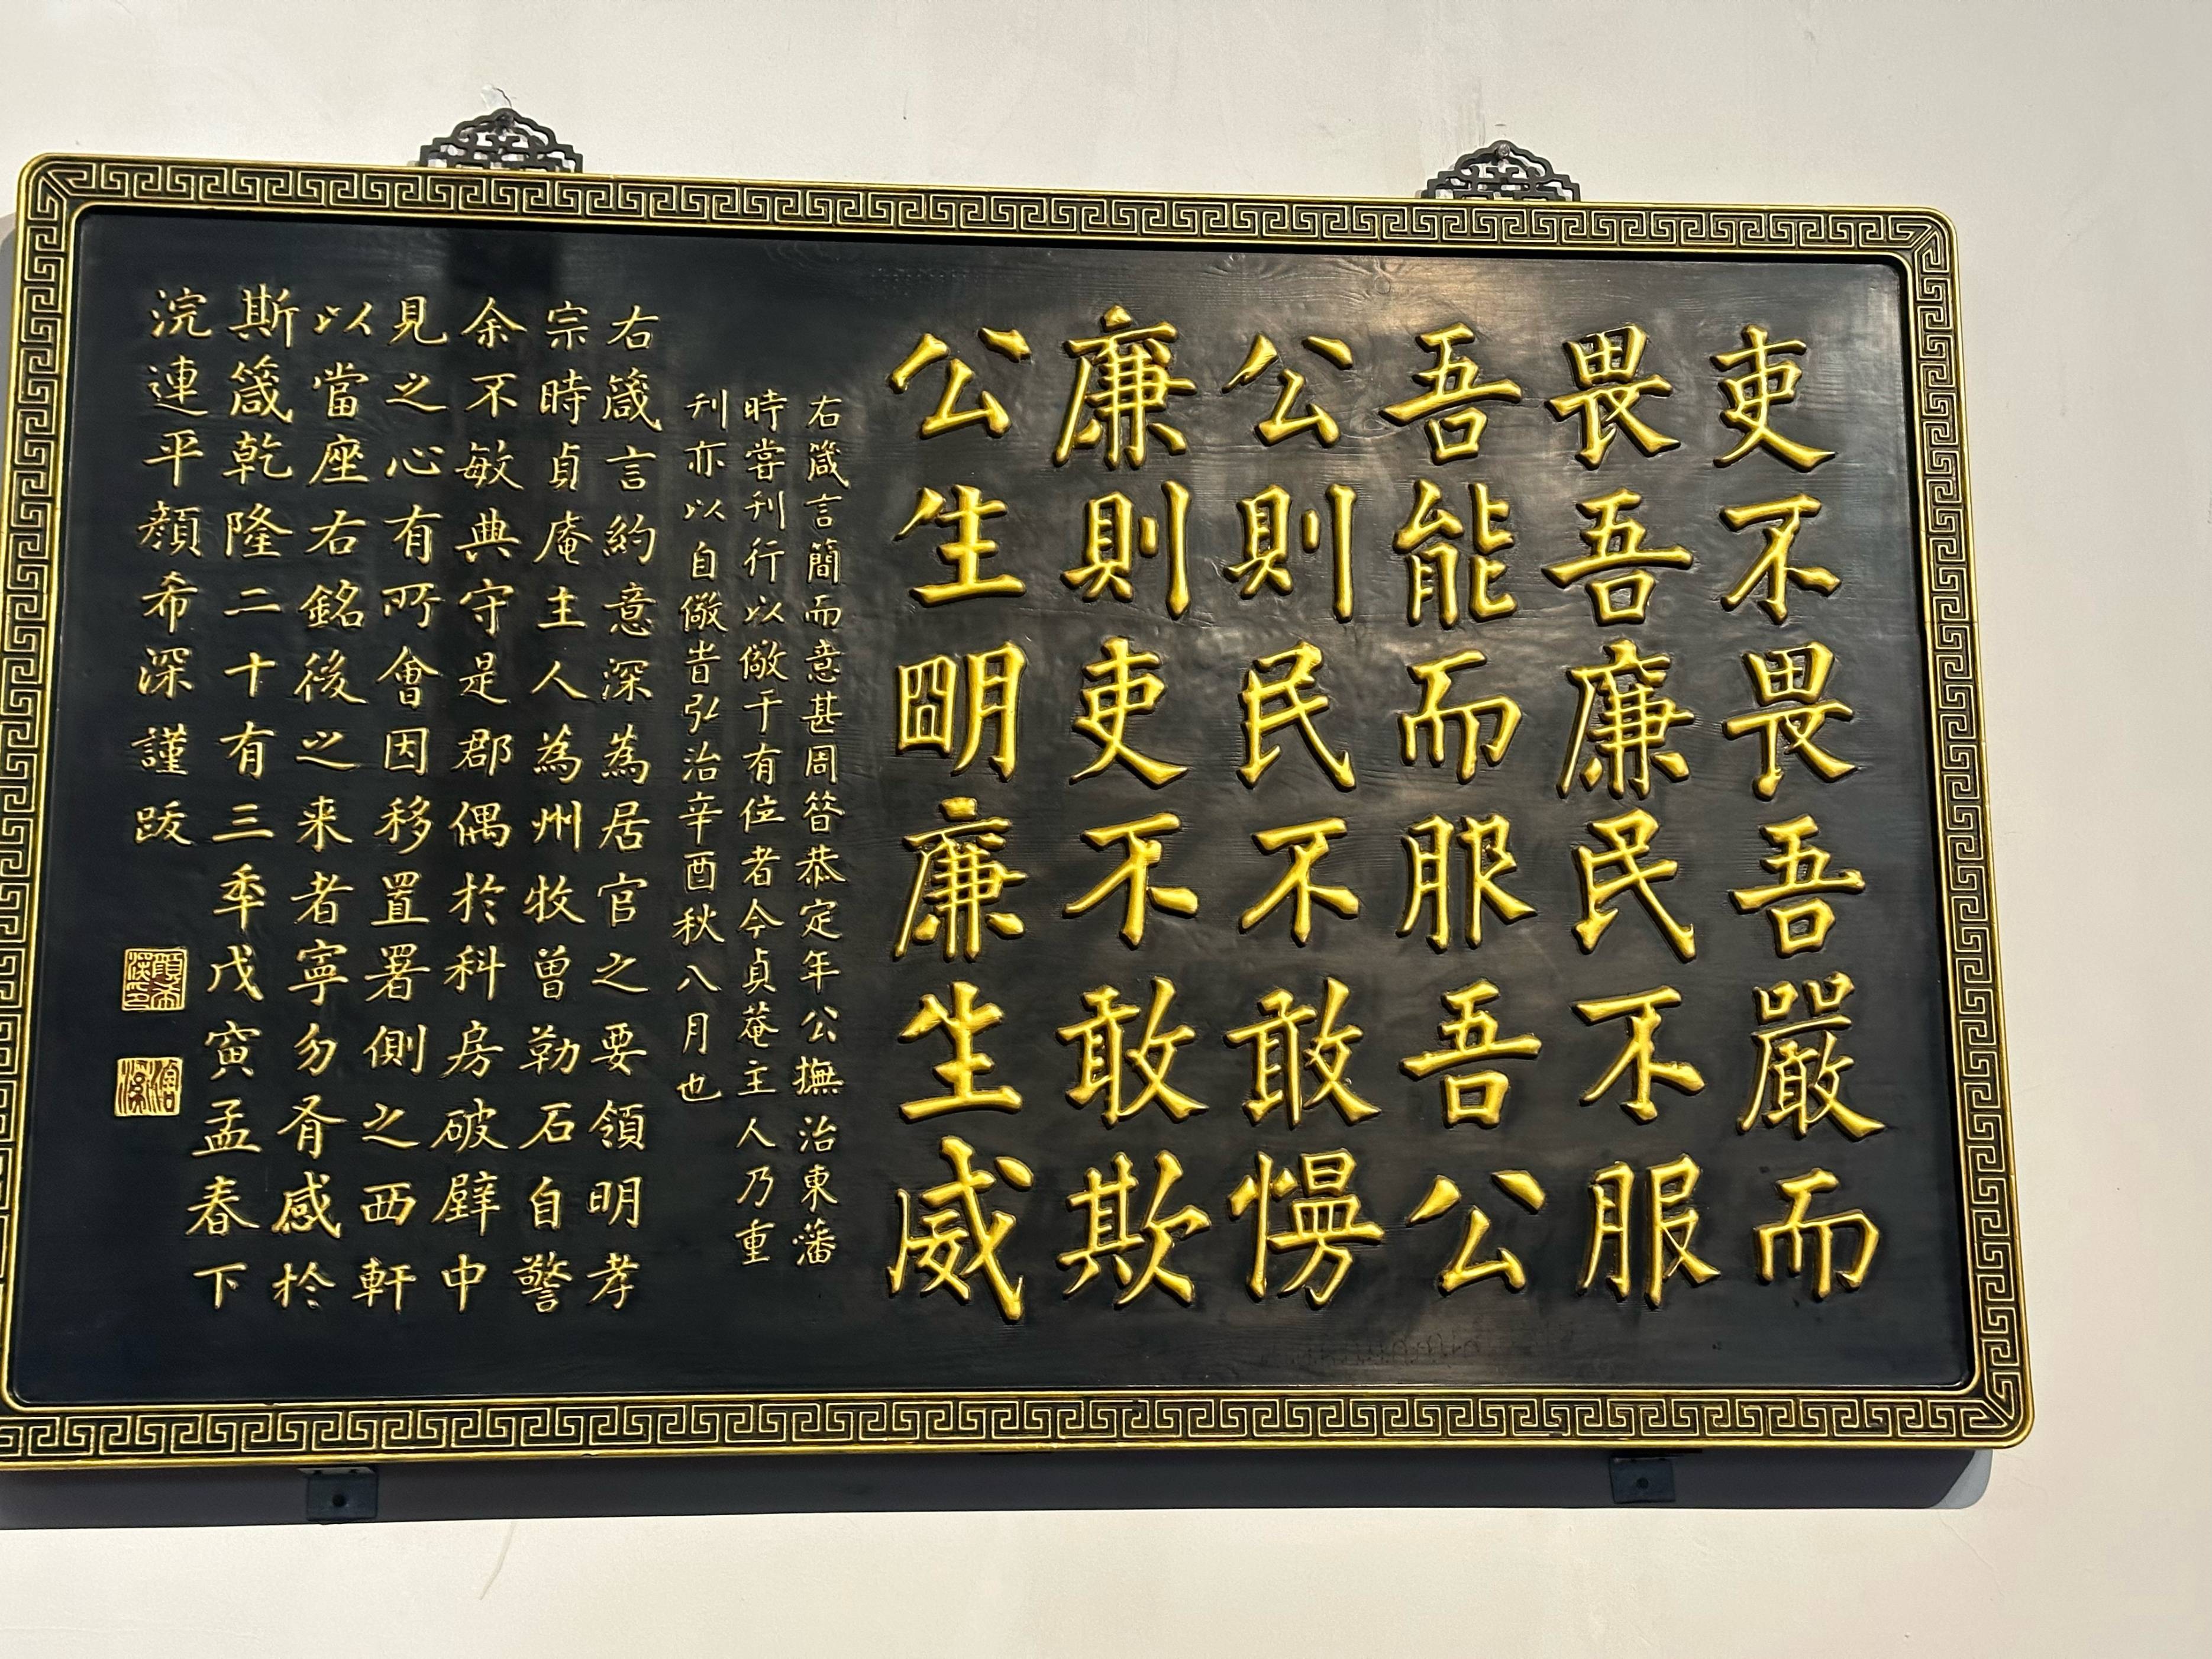 吏不畏吾嚴而
畏吾廉民不服
吾能而服吾公
公則民不敢慢
廉則吏不敢欺
公生明廉生威
右箴言簡而意甚周昝恭定年公撫治東藩
時嘗刊行以儆于有位者今貞菴主人乃重
刊亦以自儆旹弘治辛酉秋八月也
右箴言約意深為居官之要領明孝
宗時貞庵主人為州牧曾勒石自警
余不敏典守是郡偶於科房破壁中
見之心有所會因移置署側之西軒
以當座右銘後之来者寧勿有感於
斯箴乾隆二十有三秊戊寅孟春下
浣連平顏希深謹跋